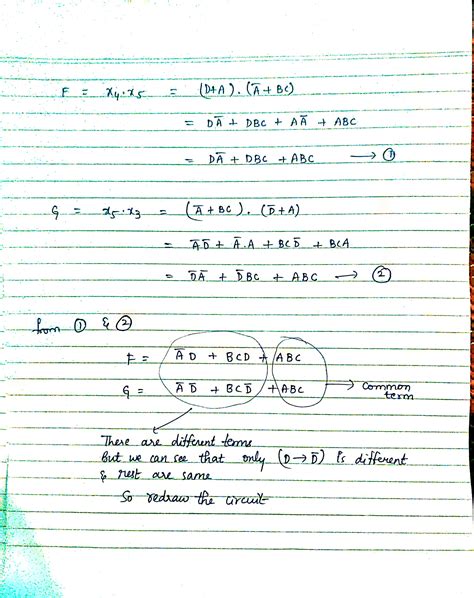 F = x₄·x₅ = (D+A).(A̅+BC)
= DA̅ + DBC + AA̅ + ABC
= DA̅ + DBC + ABC → ①
G = x₅·x₃ = (A̅+BC).(D̅+A)
= A̅D̅ + A̅.A + BCD̅ + BCA
= D̅A̅ + D̅BC + ABC → ②
from ① & ②
F = A̅D + BCD + ABC
G = A̅D̅ + BCD̅ + ABC → Common term
There are different terms
But we can see that only (D→D̅) is different
& rest are same
So redraw the circuit